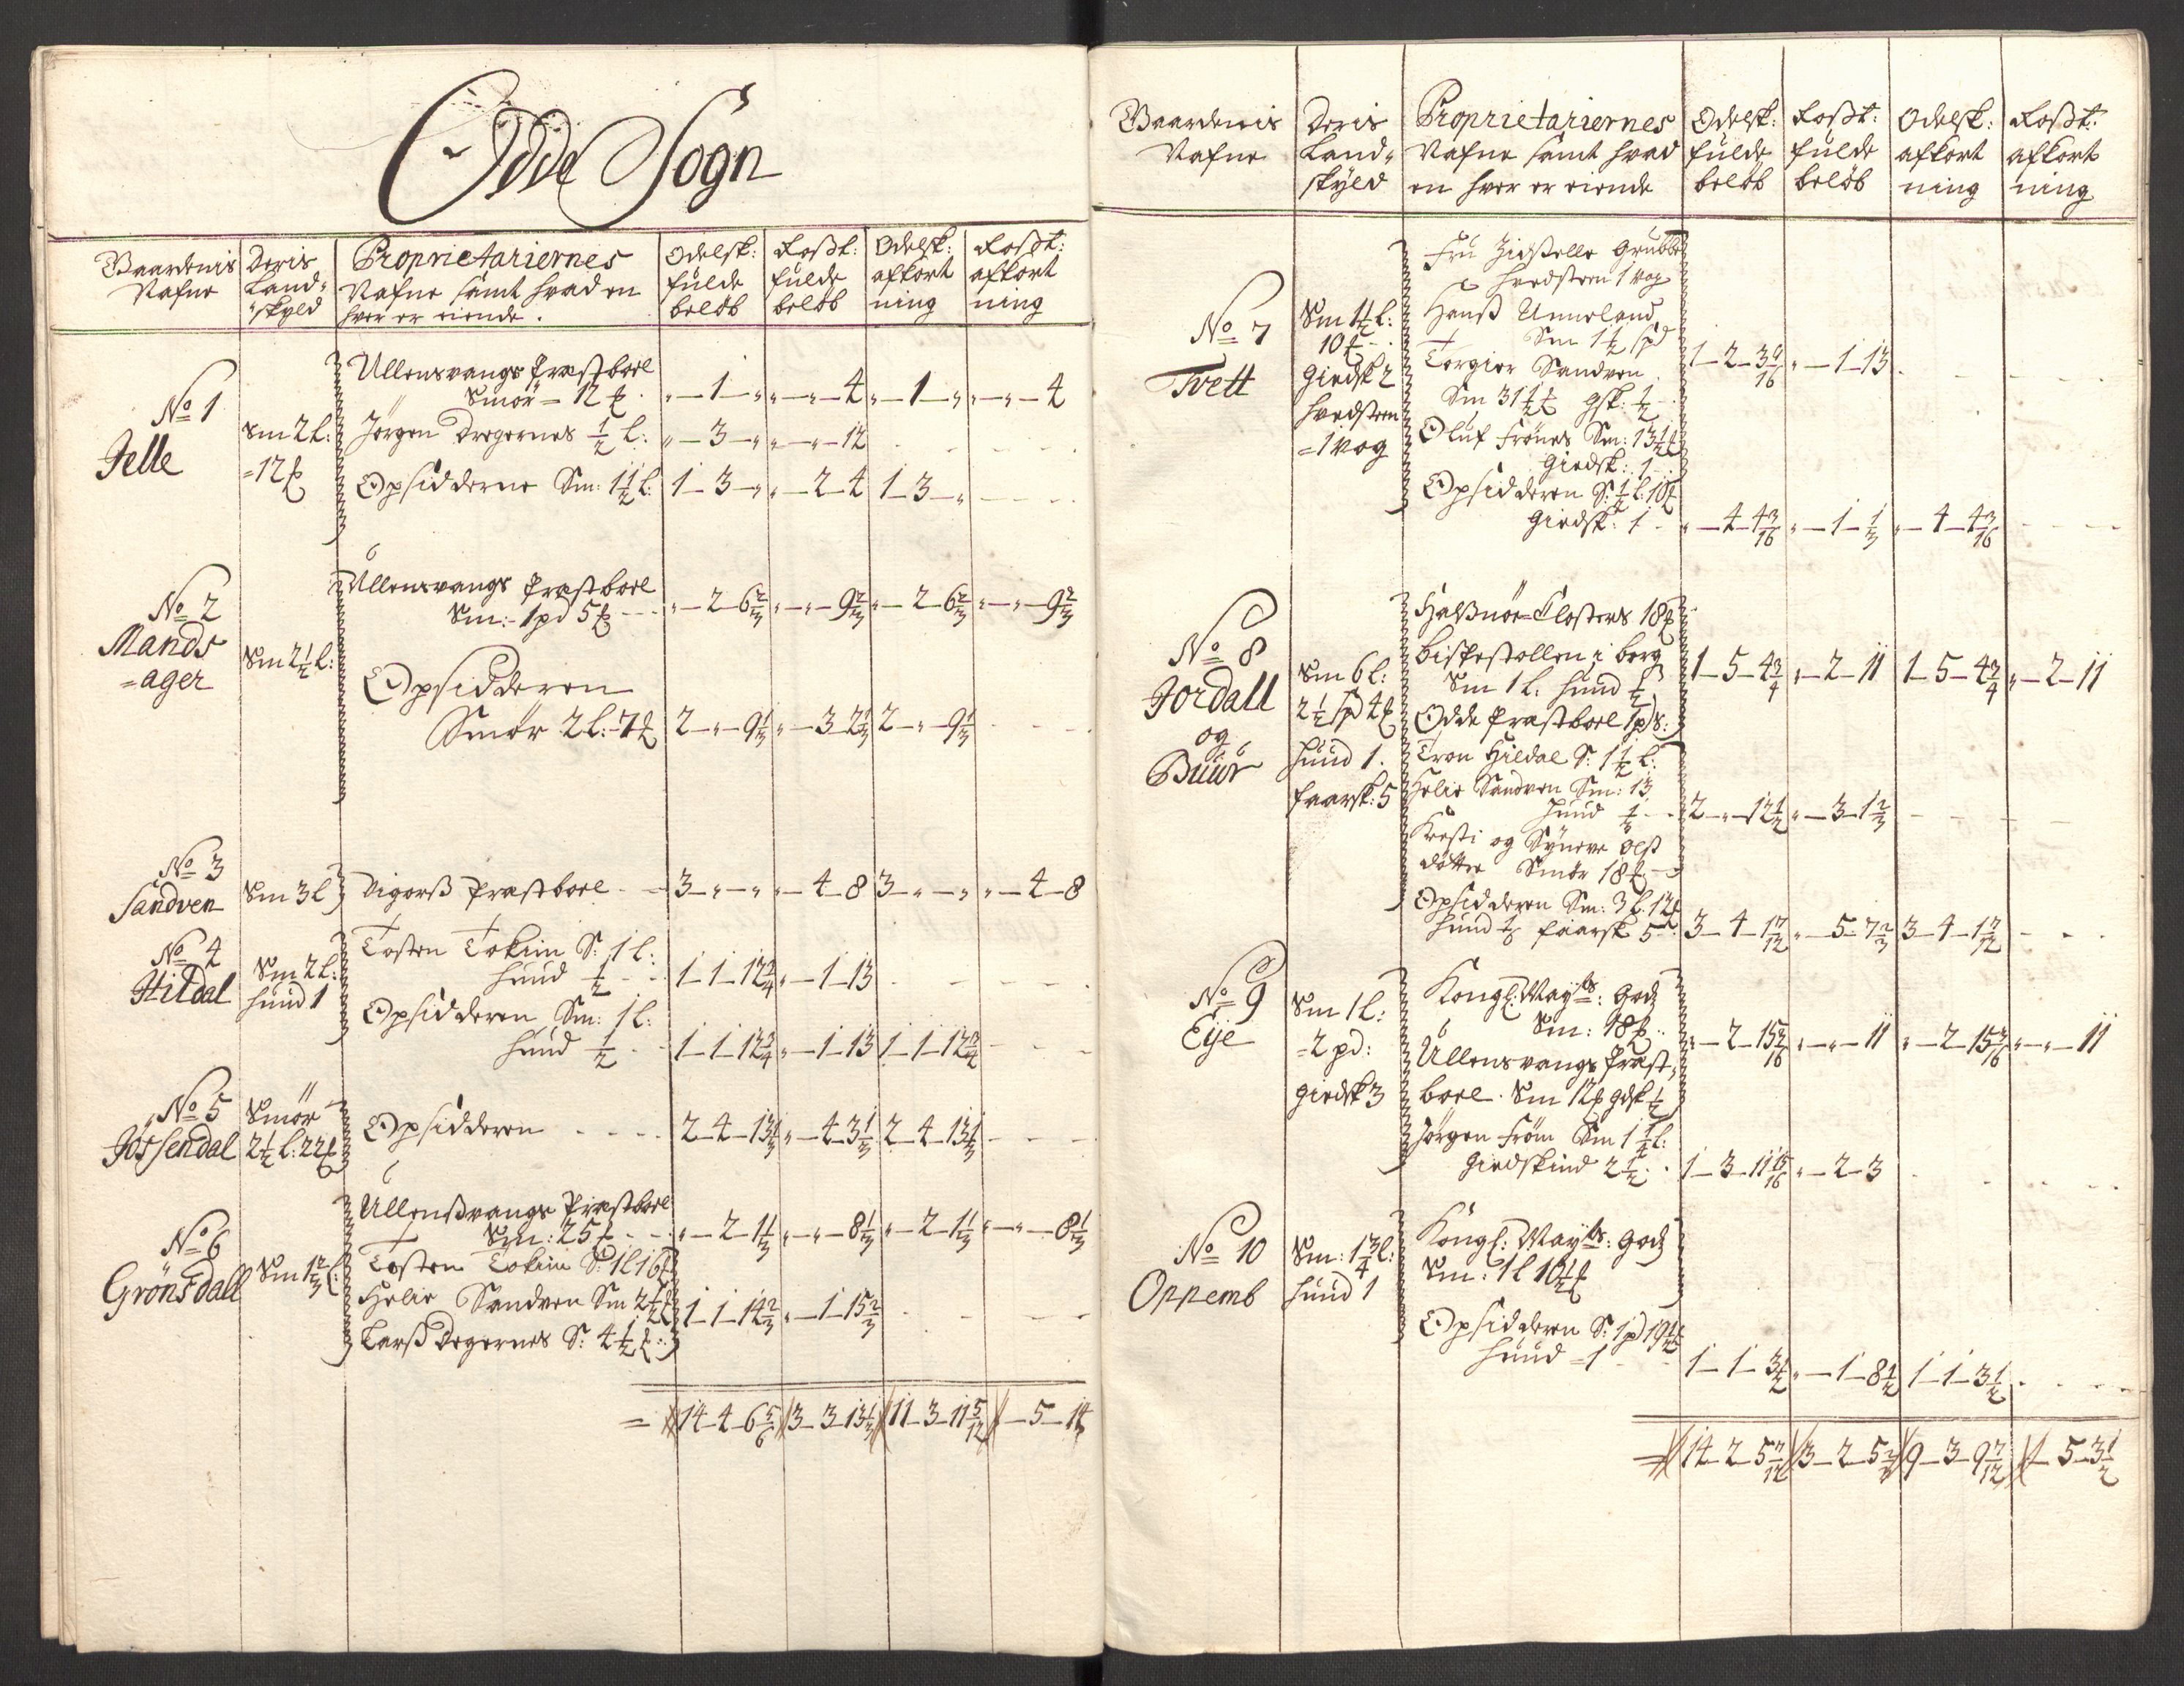 Odde Sogn
Gaardenis Nafne
Deris Land-skyld
Proprietariernes Nafne sampt hvad en hver er eiende.
Odelsk: fulde beløb
Roßt: fulde beløb
Odelsk: afkort ning
Roßt: afkort ning
No 1
Jelle
Sm 2 l:
=12 ℔
Ullensvangs Præstboel
Smör = 12 ℔ . „—1—„ „—„—4 „—1—„ „—„—4
Jørgen Dregernes 1/2 l: „—3—„ „—„—12
Opsidderne Sm: 1 1/2 l: 1—3—„ „—2—4 1—3—„
No 2
Mands
=ager
Sm 2 1/2 l:
Ullensvangs Præstboel
Sm:- 1 pd 5 ℔ „—2—6 2/3 „—„—9 2/3 „—2—6 2/3 „—„—9 2/3
Opsidderen
Smør 2 l: 7 ℔ 2—„—9 1/3 „—3—2 1/3 2—„—9 1/3
No 3
Sandven
Sm 3 l
Vigorß Præstboel 3—„—„ „—4—8 3—„—„ „—4—8
No 4
Hildal
Sm 2 l:
hund 1
Tosten Tokim S: 1 l:
hund 1/2 1—1—12 3/4 „—1—13
Opsidderen Sm: 1 l:
hund 1/2 1—1—12 3/4 „—1—13 1—1—12 3/4
No 5
Jössendal
Smör
2 1/2 l: 22 ℔
Opsidderen 2—4—13 1/3 „—4—3 1/3 2—4—13 1/3
No 6
Grönsdall
Sm 1 2/3 l:
Ullenßvangs Præstboel
Sm: 25 ℔ „—2—1 1/3 „—„—8 1/3 „—2—1 1/3 „—„—8 1/3
Tosten Tokim S: 1 l 16 ℔
Helie Sandven Sm 2 1/2 ℔ 1—1—14 2/3 „—1—15 2/3
Larß Degernes S: 4 1/2 ℔
= 14—4—6 5/6 3—3—13 1/3 11—3—11 5/12 1—5—14
Gaardenis Nafne
Deris Land-skyld
Proprietariernes Nafne sampt hvad en hver er eiende
Odelsk: fulde beløb
Roßt: fulde beløb
Odelsk: afkort ning
Roßt: afkort ning
No 7
Tvett
Sm 1 1/2 l:
10 ℔
Giedsk 2
hvedsteen
=1 vog
Fru Zidselle Grubbe
hvedsteen 1 vog
Hanß Unneland
Sm 1 1/2 spd
Torgier Sandven
Sm 31 1/2 ℔ gsk: 1/2 1—2—3 9/16 „—1—13
Oluf Frönes Sm: 13 1/2 ℔
Giedsk: 1
Opsidderen S: 1/2 l: 10 ℔
Giedsk: 1 „—4—4 3/16 „—1—1/3 „—4—4 3/16
No 8
Jordall
og
Buur
Sm 6 l:
2 1/2 spd 4 ℔
hund 1.
faarsk: 5
Halßnöe Closters 18 ℔
Bispestollen i berg
Sm 1 l: hund 1/3 1—5—4 3/4 „—2—11 1—5—4 3/4 „—2—11
Odde Præstboel 1 pd s:
Tron Hildal S: 1 1/2 l:
Helie Sandven Sm: 13
hund 1/2 2—„—12 1/2 „—3—1 2/3
Kresti og Syneve Olß
dötter Smör 18 ℔
Opsidderen Sm: 3 l: 12 ℔
hund 1/6 faarsk 5 3—4—1 7/12 „—5—7 2/3 3—4—1 7/12
No 9
Eije
Sm 1 l:
=2 pd:
giedsk 3
Kongl: Mayts: Godz
Sm: 18 ℔ „—2—15 3/16 „—„—11 „—2—15 3/16 „—„—11
Ullensvangs Præst-
boel. Sm 12 ℔ gdsk 1/2
Jörgen Fröm Sm 1 1/2 l:
giedskind 2 1/2 1—3—11 15/16 „—2—3
No 10
Oppemb
Sm: 1 3/4 l:
hund 1
Kongl: Mayts: Godz
Sm: 1 l 10 1/2 ℔
Opsidderen S: 1 pd 19 1/2 ℔
hund =1 1—1—3 1/2 „—1—8 1/2 1—1—3 1/2
= 14—2—5 7/12 3—2—5 9—3—9 7/12 1—5—3 1/2